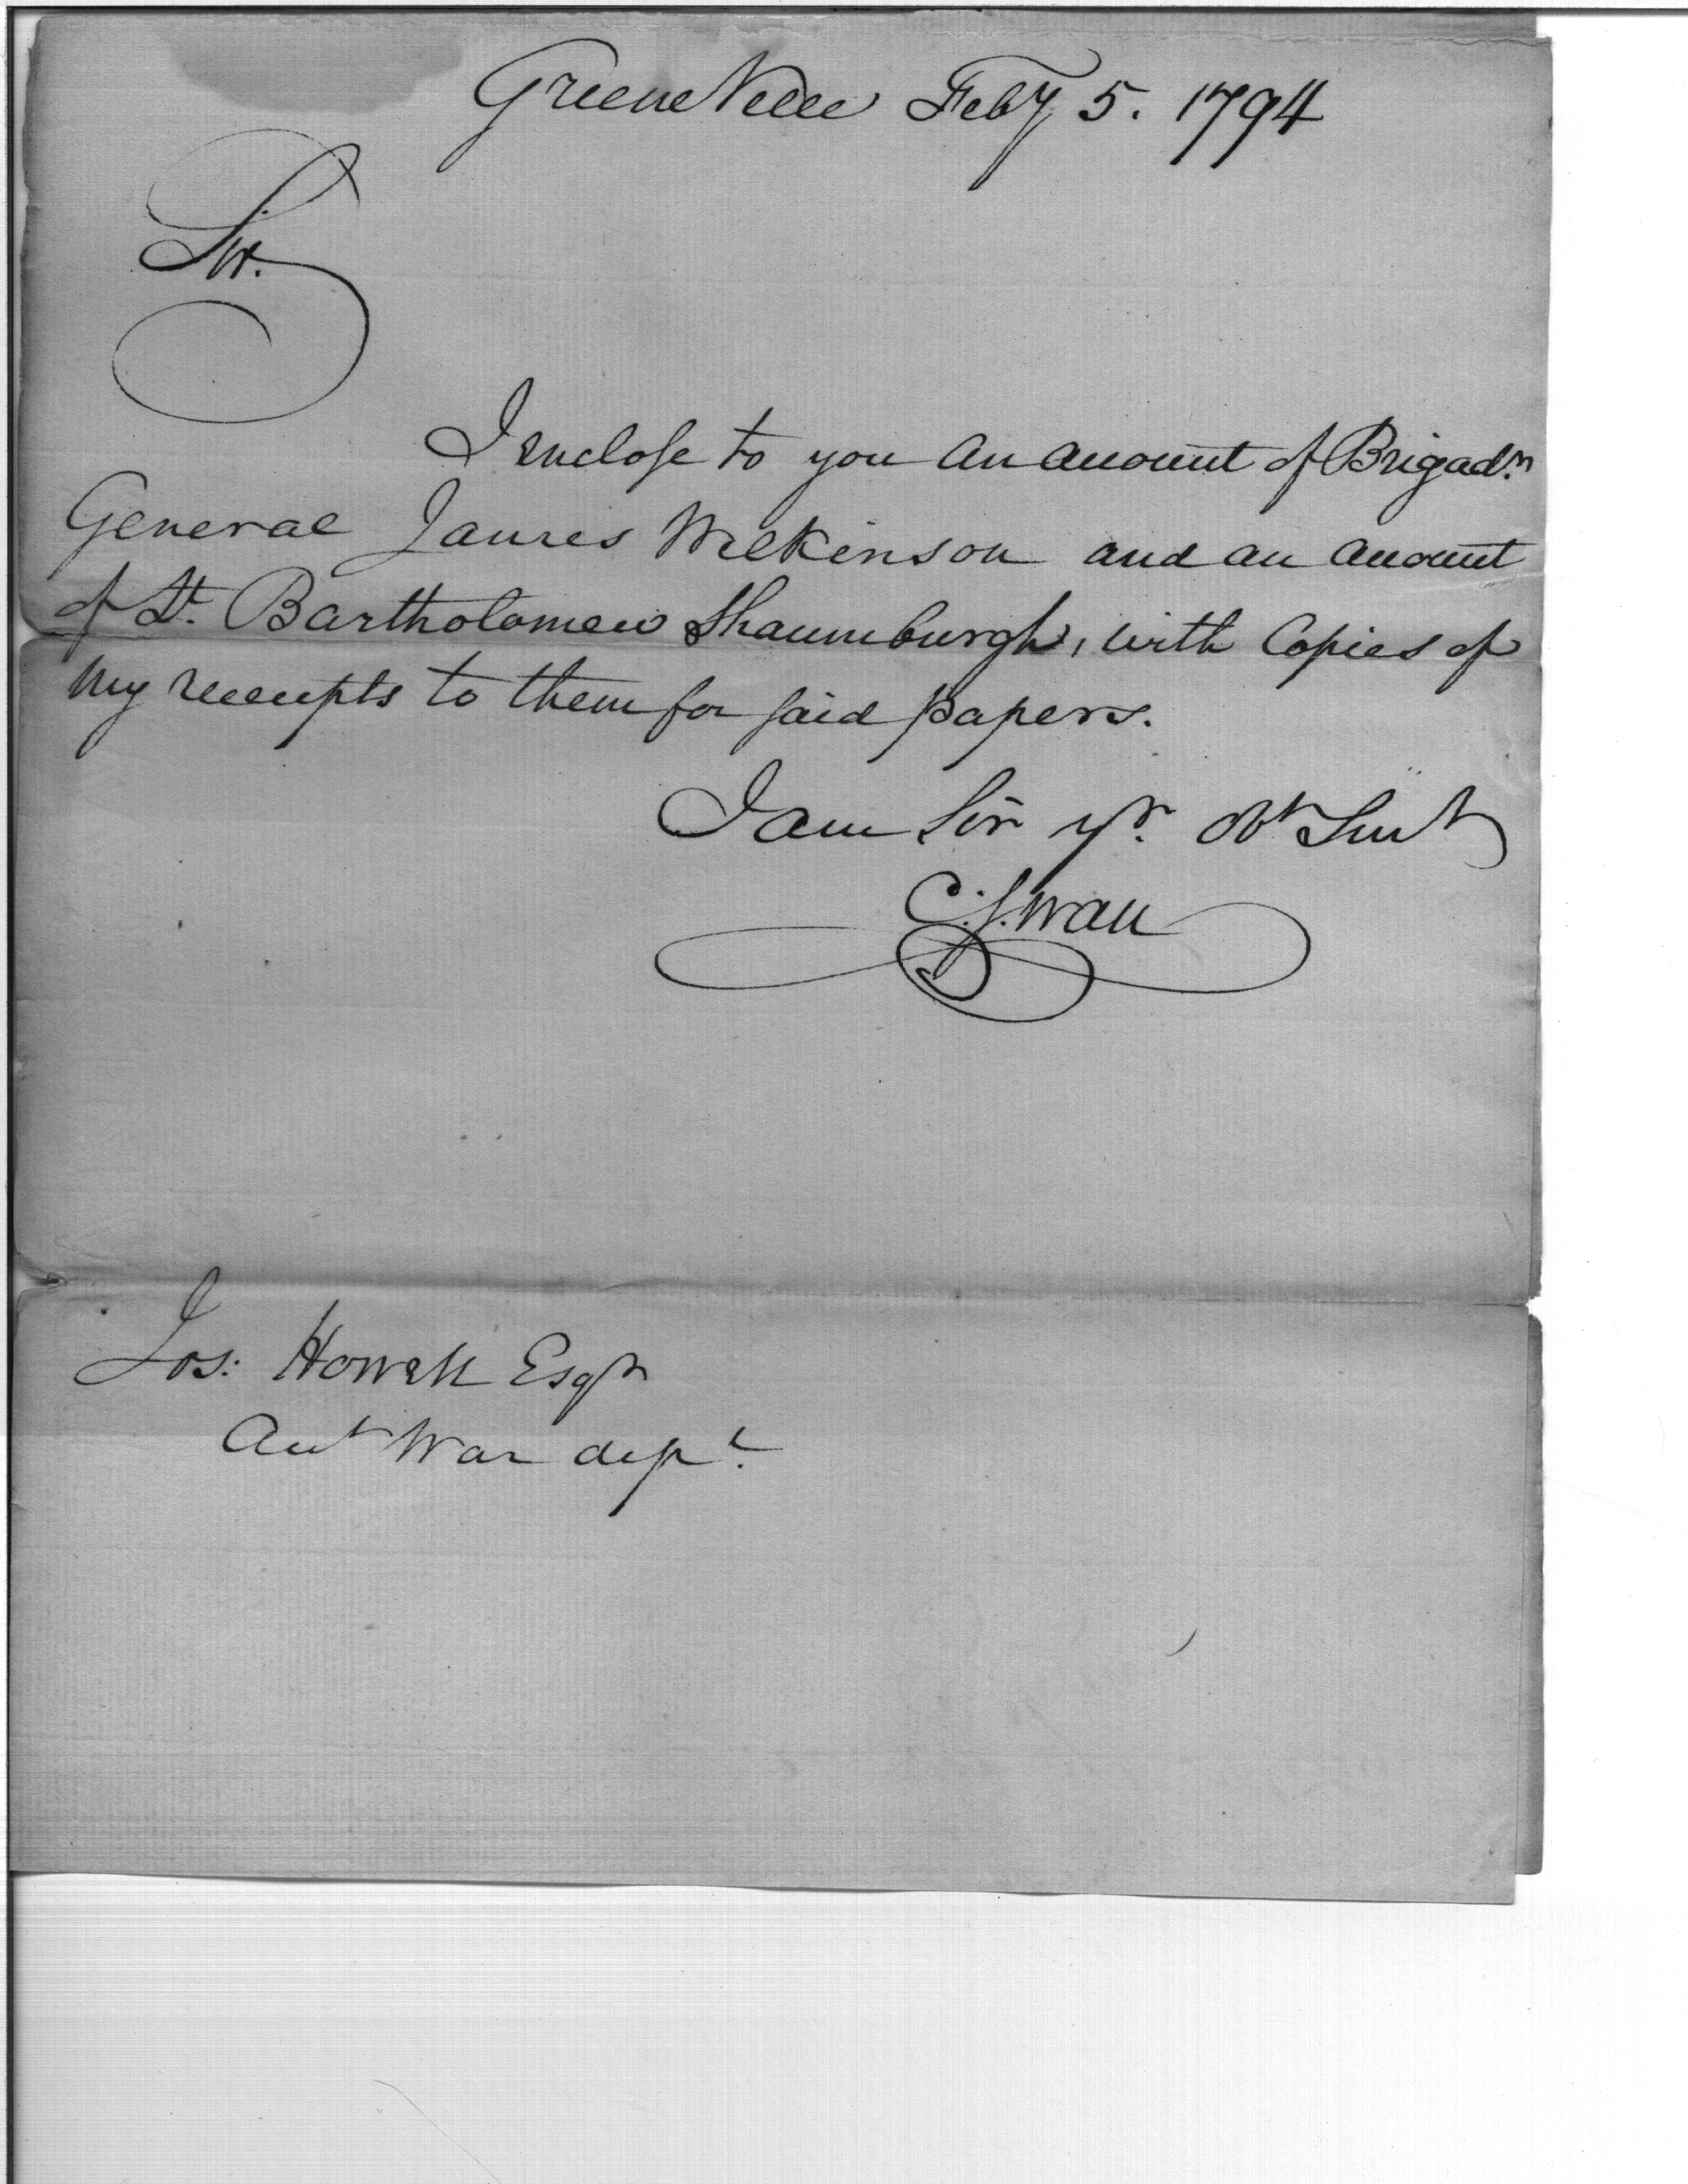 GreeneVille Feby 5. 1794
Sir.
I enclose to you an account of Brigadr.
General James Wilkinson and an account
of Lt. Bartholomew Shaumburgh, with Copies of
my receipts to them for said papers.
I am Sir yr. Obt Servt
C. Swan
Jos: Howell Esqr
Acct War dept.